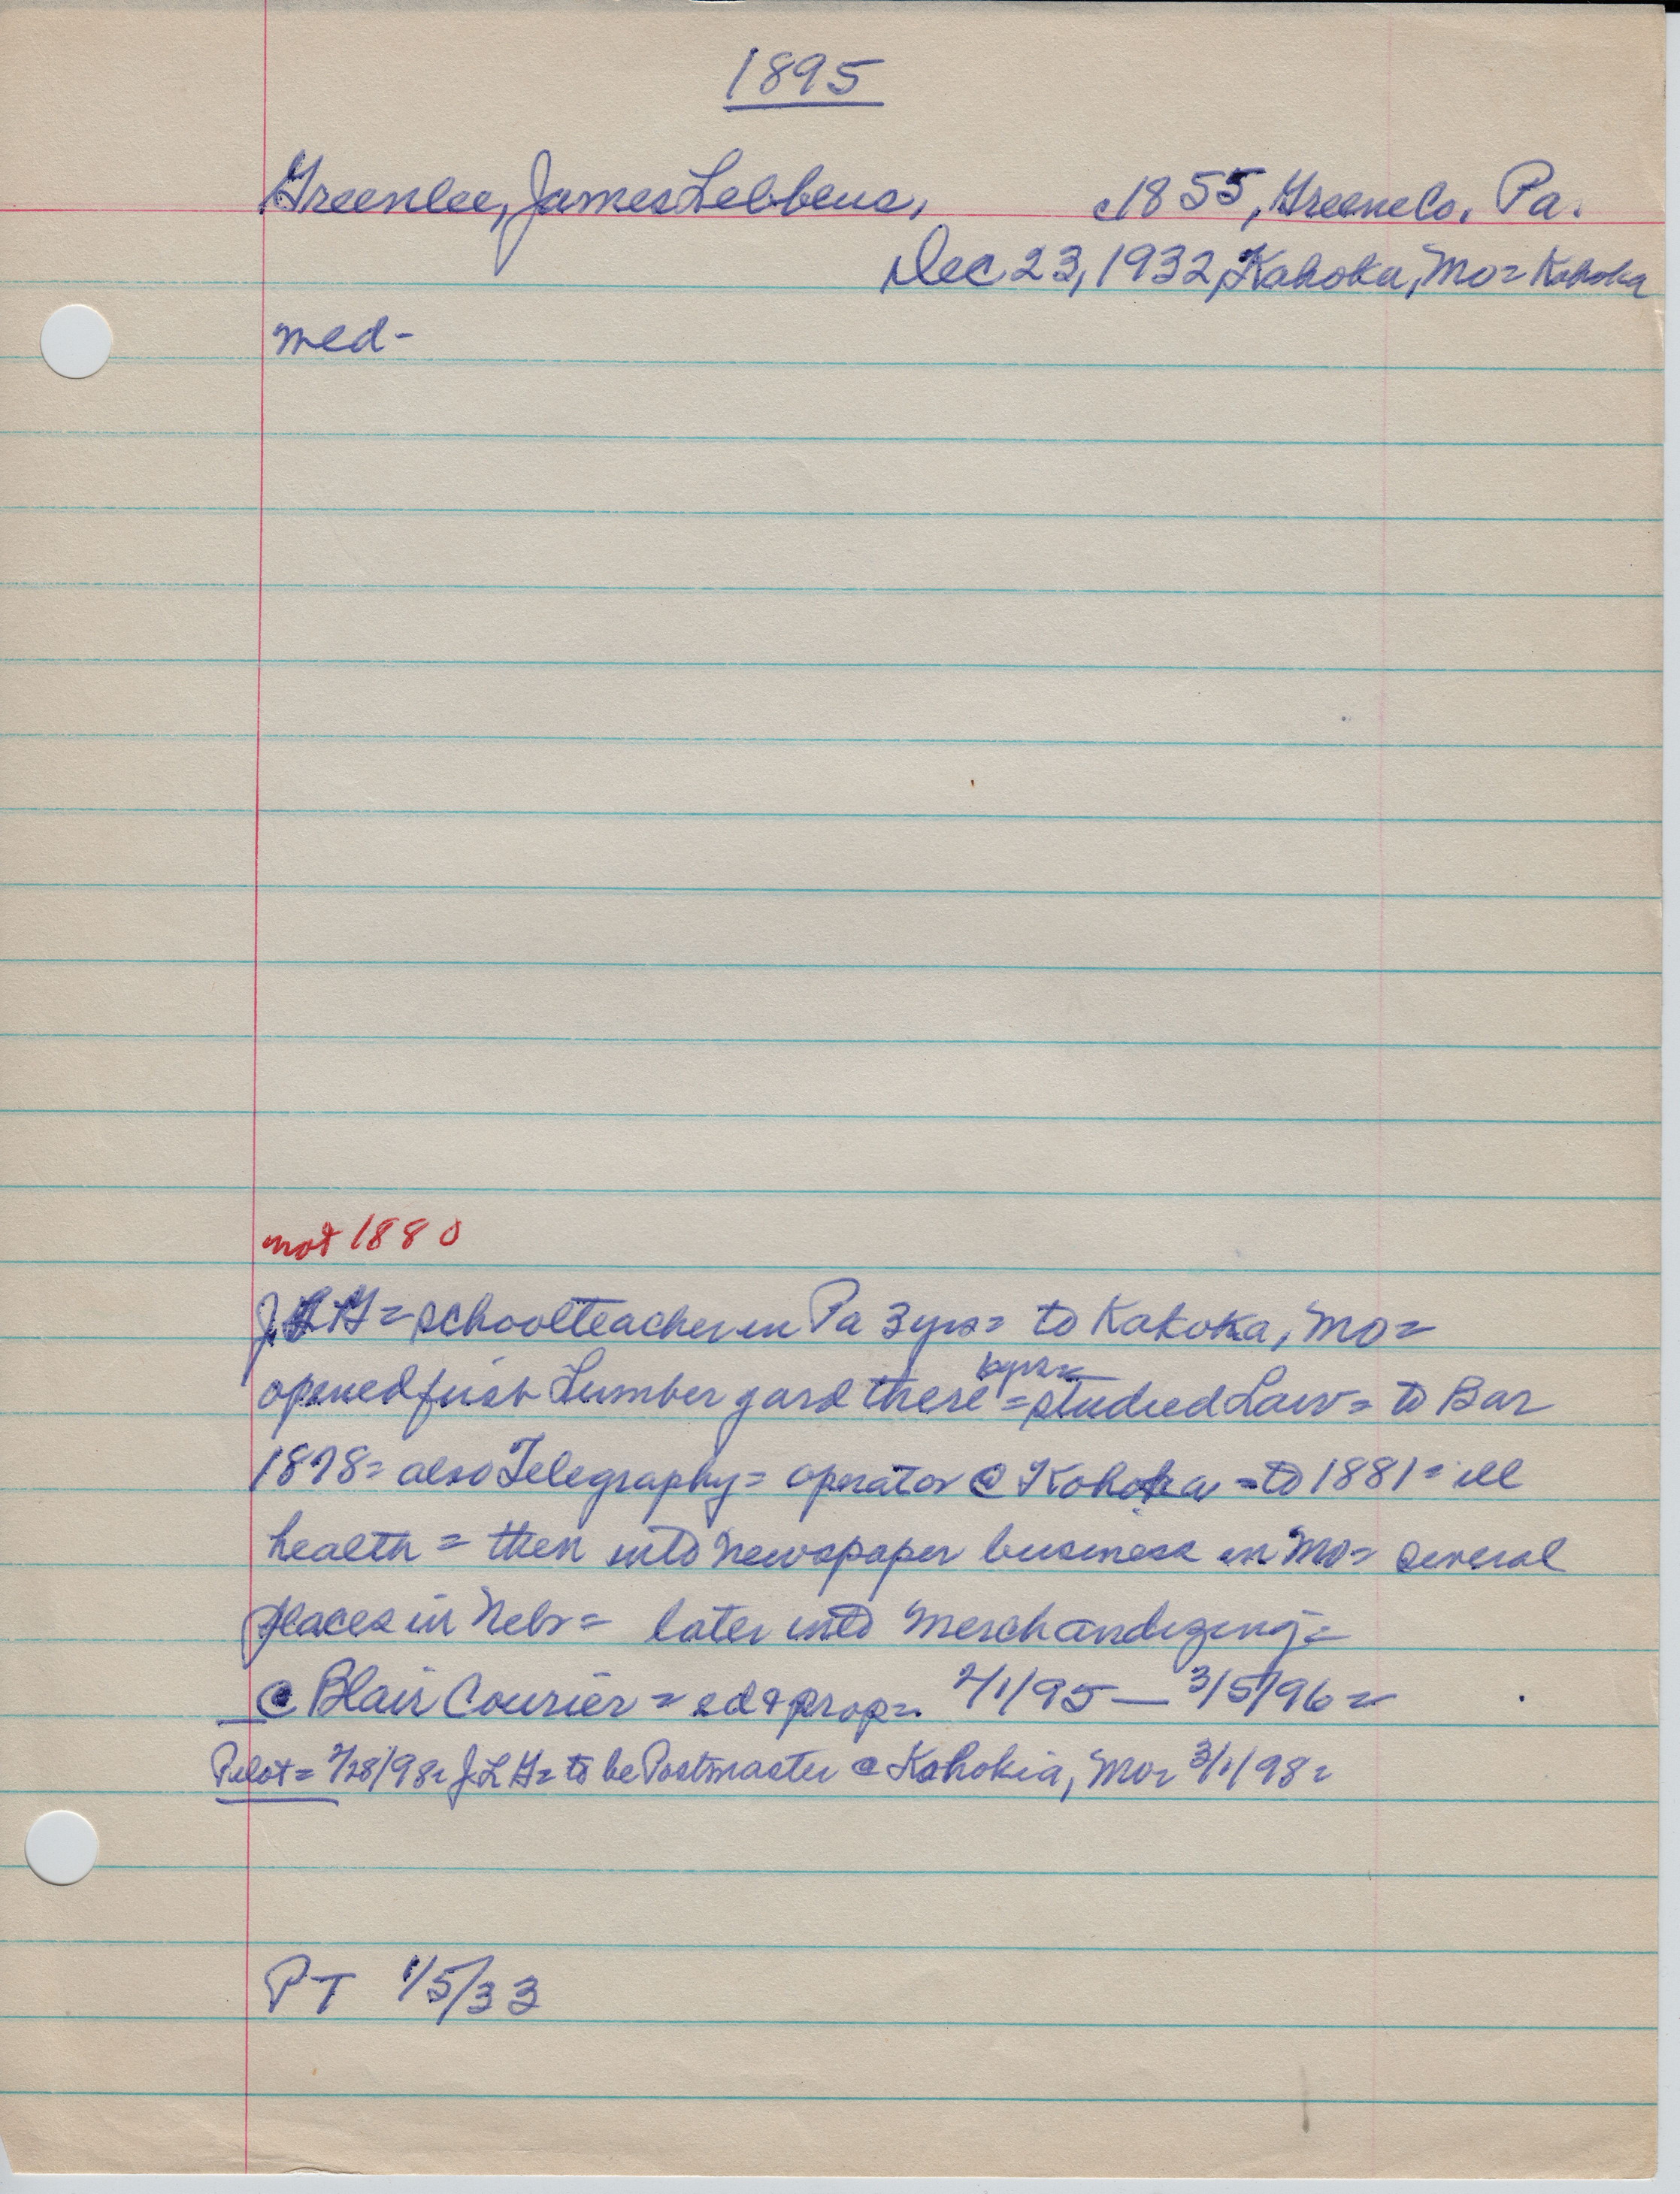 1895
Greenlee, James Lebbeus, c1855, Greene Co. Pa.
Dec 23, 1932, Kahoka, Mo = Kahoka
med-
not 1880
J.L.G = schoolteacher in Pa 3 yrs = to Kahoka, Mo =
opened first Lumber yard there = studied Law = to Bar
1878 = also Telegraphy = operator @ Kohoka - to 1881 = ill
health = then into newspaper business in Mo = several
places in Nebr = later into merchandizing =
@ Blair Courier = ed & prop = 2/1/95 — 3/5/96 =
Pilot = 2/28/98 = J.L.G = to be Postmaster @ Kahokia, Mo = 3/1/98 =
PT 1/5/33